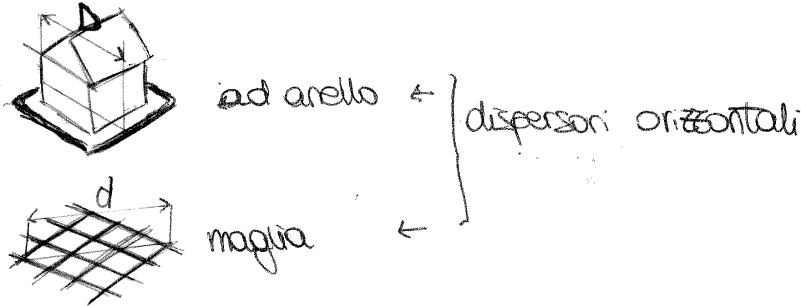 ad anello ←
dispersori orizzontali
d
maglia ←